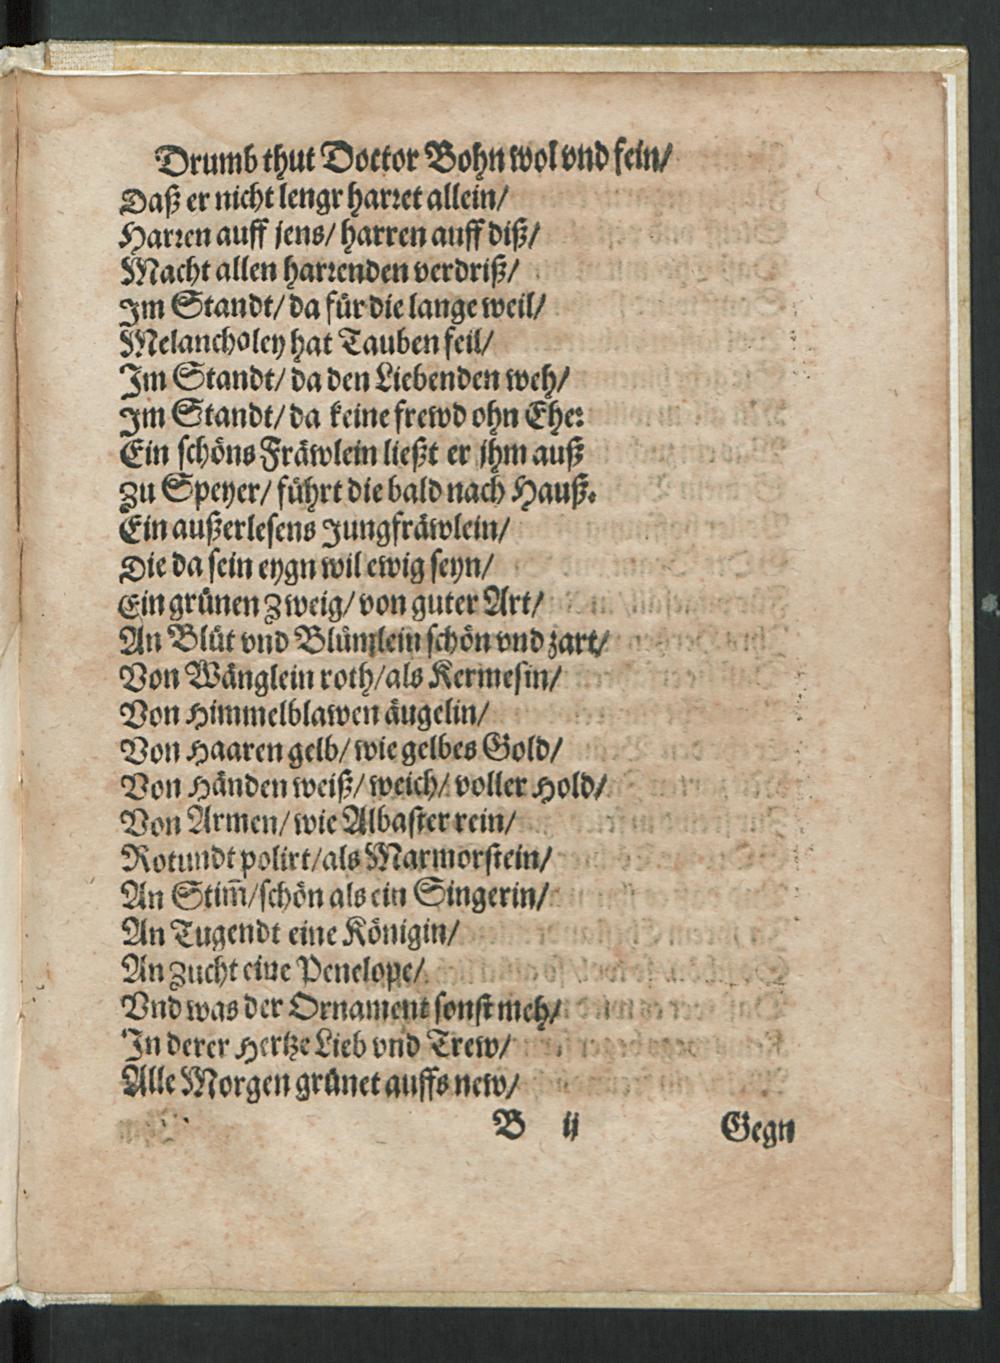 Drumb thut Doctor Bohn wol vnd fein/
Daß er nicht lengr harret allein/
Harren auff jens/ harren auff diß/
Macht allen harrenden verdriß/
Im Standt/ da für die lange weil/
Melancholey hat Tauben feil/
Im Standt/ da den Liebenden weh/
Im Standt/ da keine frewd ohn Ehe:
Ein schöns Fräwlein ließt er jhm auß
Zu Speyer/ führt die bald nach Hauß.
Ein außerlesens Jungfräwlein/
Die da sein eygn wil ewig seyn/
Ein grünen Zweig/ von guter Art/
An Blüt vnd Blümlein schön vnd zart/
Von Wänglein roth/ als Kermesin/
Von Himmelblawen äugelin/
Von Haaren gelb/ wie gelbes Gold/
Von Händen weiß/ weich/ voller Hold/
Von Armen/ wie Albaster rein/
Rotundt polirt/ als Marmorstein/
An Stim̄/ schön als ein Singerin/
An Tugendt eine Königin/
An Zucht eine Penelope/
Vnd was der Ornament sonst meh/
In derer Hertze Lieb vnd Trew/
Alle Morgen grünet auffs new/
B ij Gegn